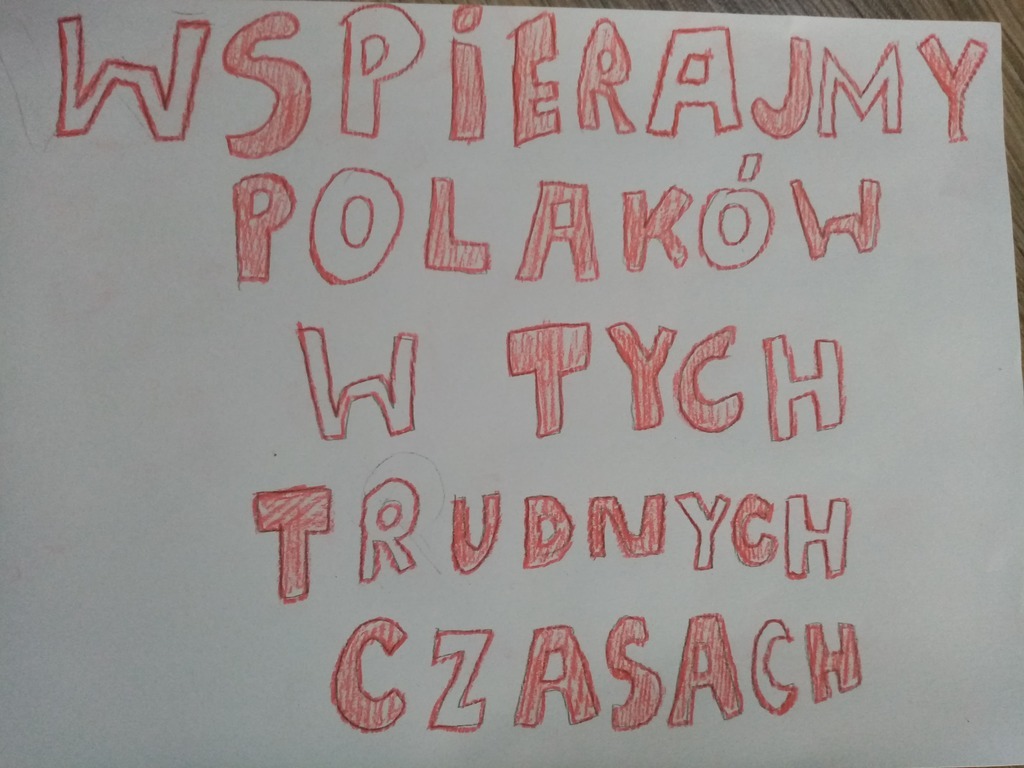 WSPiERAJMY
POLAKÓW
W TYCH
TRUDNYCH
CZASACH